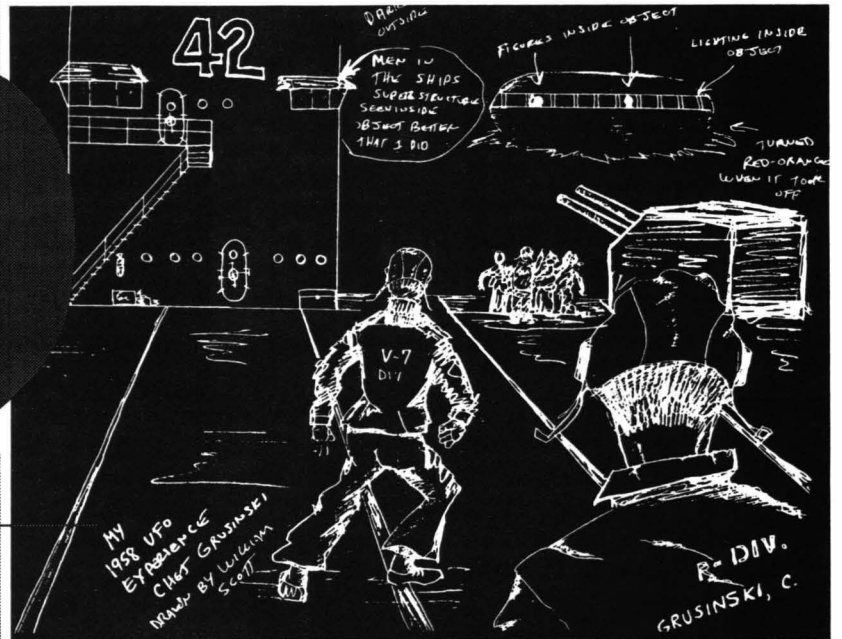 DARK
OUTSIDE
42
MEN IN
THE SHIPS
SUPERSTRUCTURE
SEEN INSIDE
OBJECT BETTER
THAT I DID
FIGURES INSIDE OBJECT
LIGHTING INSIDE
OBJECT
TURNED
RED-ORANGE
WHEN IT TOOK
OFF
V-7
DIV
MY
1958 UFO
EXPERIENCE
CHET GRUSINSKI
DRAWN BY WILLIAM
SCOTT
R-DIV.
GRUSINSKI, C.